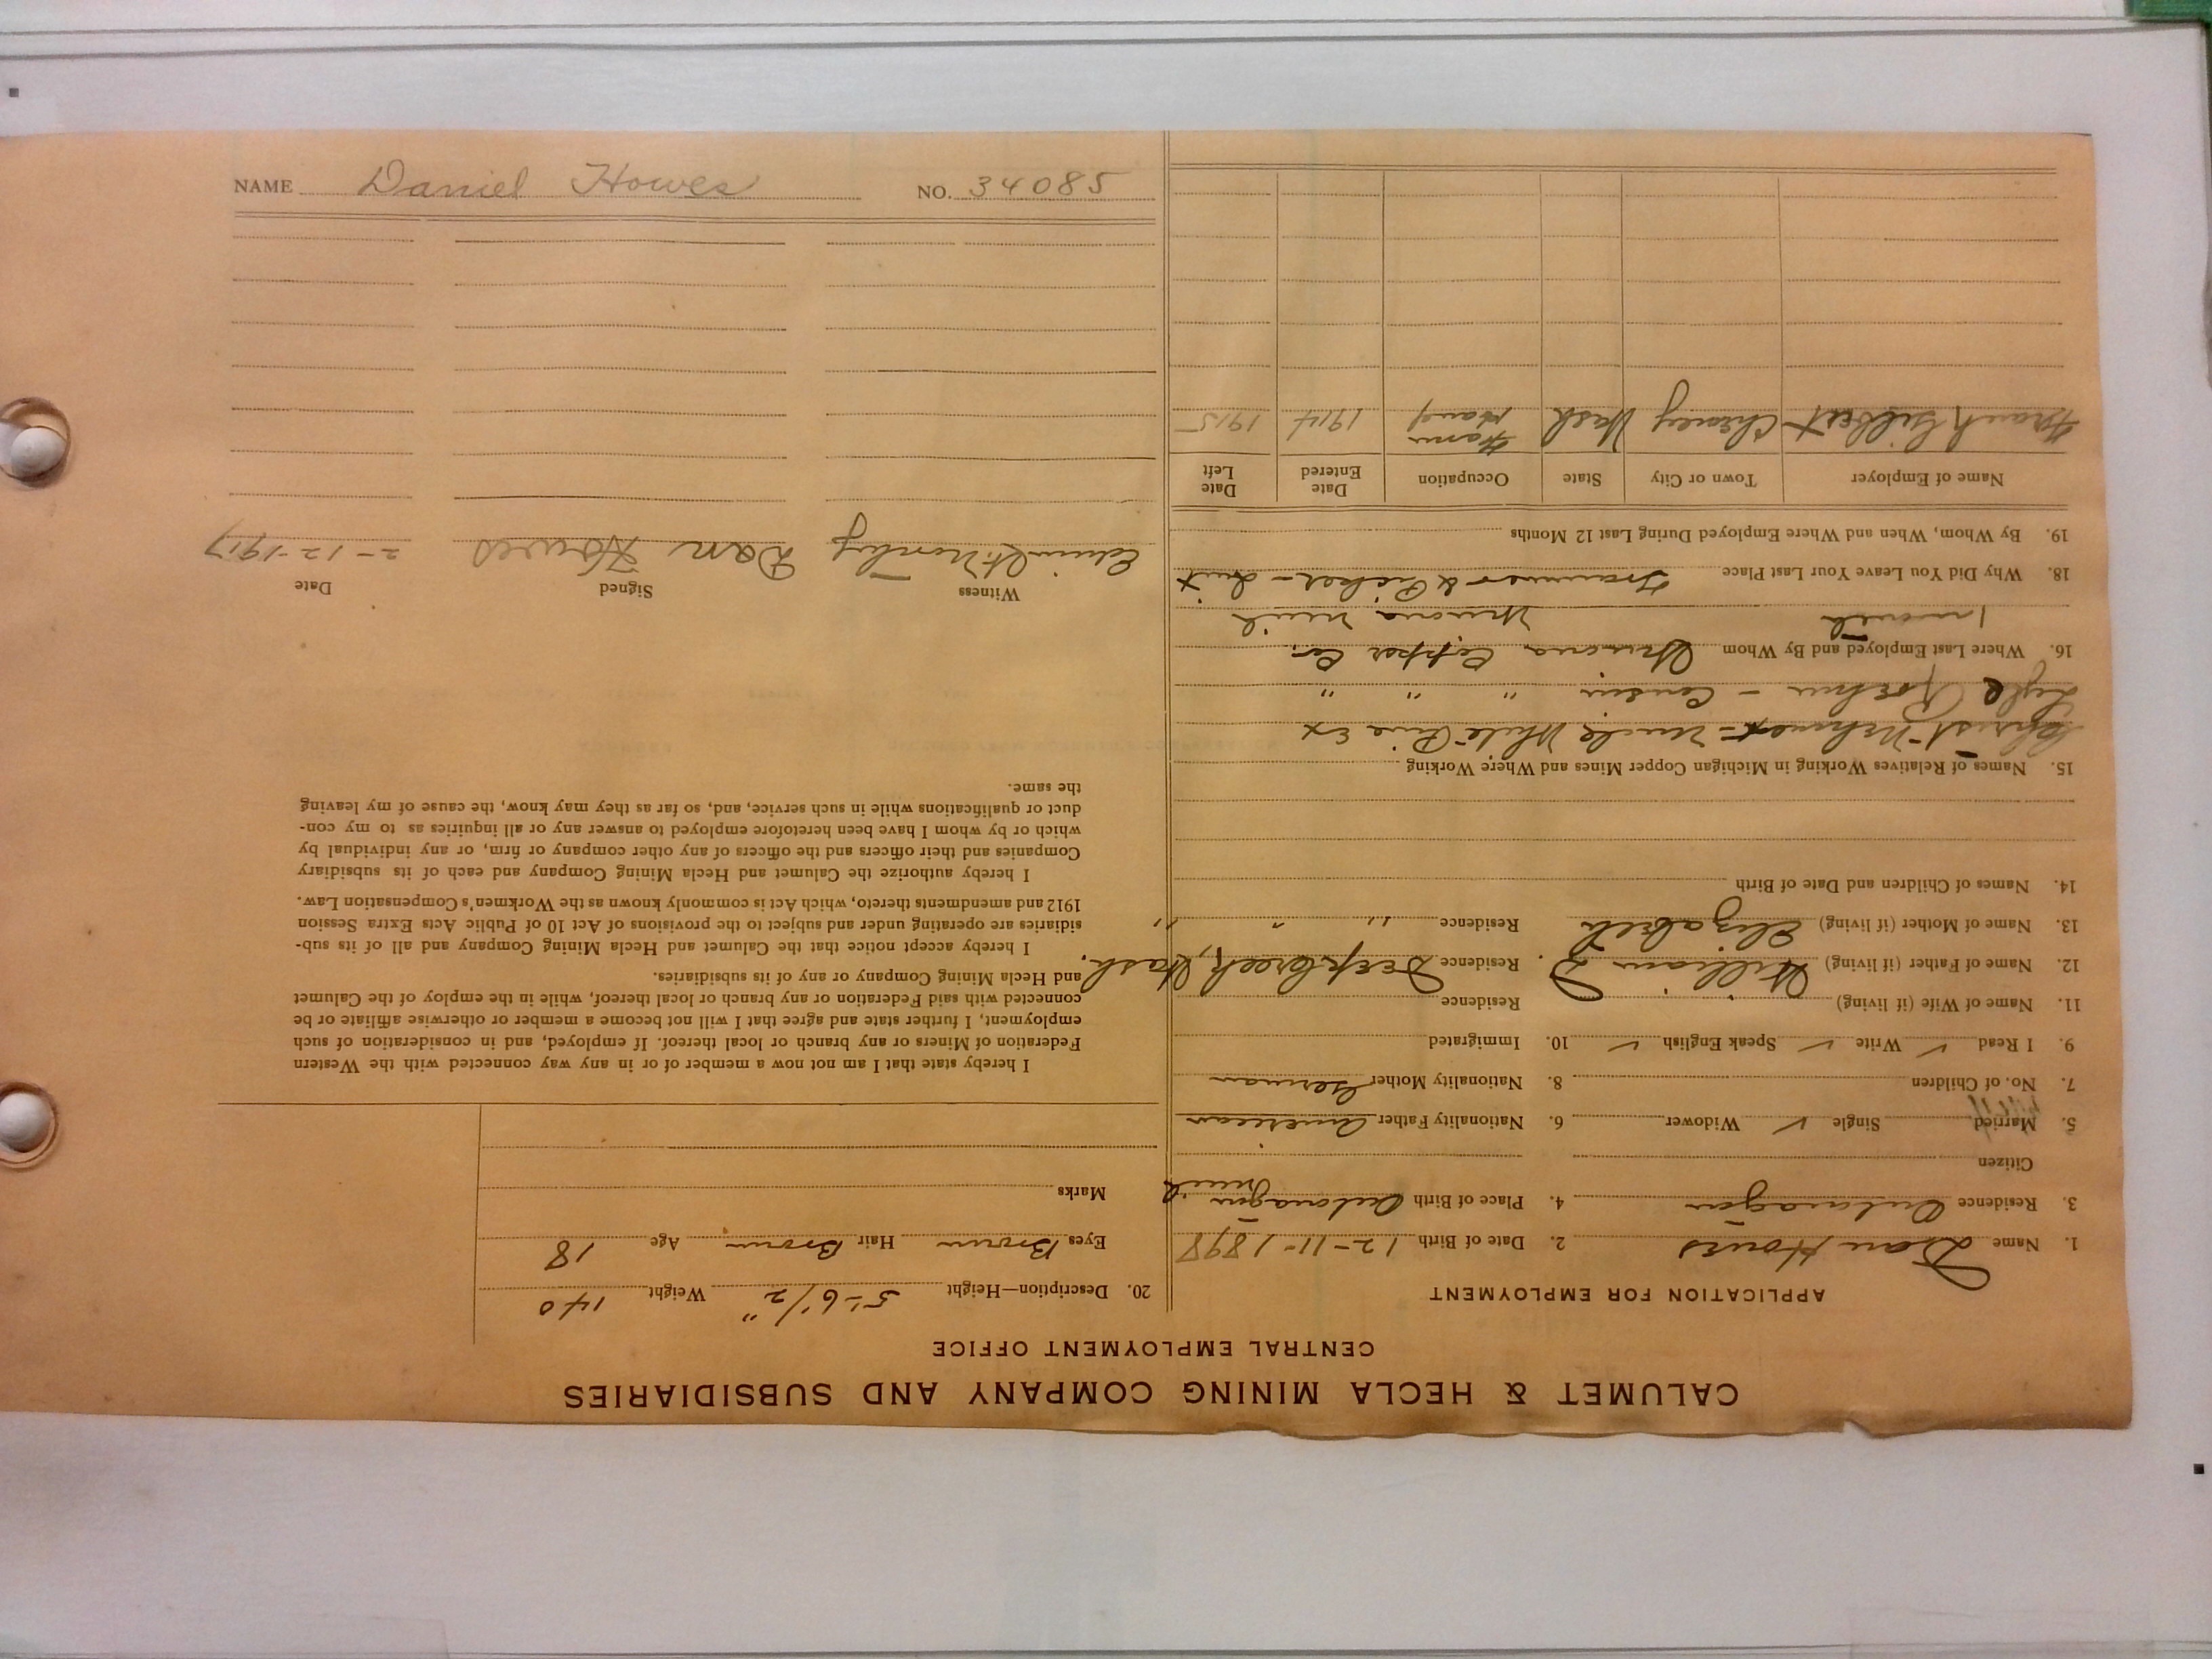 NAME Daniel Howes NO. 34085
CALUMET & HECLA MINING COMPANY AND SUBSIDIARIES
CENTRAL EMPLOYMENT OFFICE
APPLICATION FOR EMPLOYMENT
1. Name Dan Howes 2. Date of Birth 12-11-1898
3. Residence Ontonagon 4. Place of Birth Ontonagon Mich
Citizen
5. Married Single ✓ Widower 6. Nationality Father American
7. No. of Children 8. Nationality Mother German
9. I Read ✓ Write ✓ Speak English ✓ 10. Immigrated
11. Name of Wife (if living) Residence
12. Name of Father (if living) William D. Residence Deep Creek, Wash.
13. Name of Mother (if living) Elizabeth Residence " " "
14. Names of Children and Date of Birth
15. Names of Relatives Working in Michigan Copper Mines and Where Working
Uncle White Pine Ex
Lyle - Cousin " " "
16. Where Last Employed and By Whom Winona Copper Co.
1 month Winona Mich
18. Why Did You Leave Your Last Place Trammer & Picker - Quit
19. By Whom, When and Where Employed During Last 12 Months
Name of Employer Town or City State Occupation Date Entered Date Left
Frank Gilbert Cheney Wash Farm Hand 1914 1915
20. Description—Height 5'-6 1/2" Weight 140
Eyes Brown Hair Brown Age 18
Marks
I hereby state that I am not now a member of or in any way connected with the Western
Federation of Miners or any branch or local thereof. If employed, and in consideration of such
employment, I further state and agree that I will not become a member or otherwise affiliate or be
connected with said Federation or any branch or local thereof, while in the employ of the Calumet
and Hecla Mining Company or any of its subsidiaries.
I hereby accept notice that the Calumet and Hecla Mining Company and all of its sub-
sidiaries are operating under and subject to the provisions of Act 10 of Public Acts Extra Session
1912 and amendments thereto, which Act is commonly known as the Workmen's Compensation Law.
I hereby authorize the Calumet and Hecla Mining Company and each of its subsidiary
Companies and their officers and the officers of any other company or firm, or any individual by
which or by whom I have been heretofore employed to answer any or all inquiries as to my con-
duct or qualifications while in such service, and, so far as they may know, the cause of my leaving
the same.
Witness Signed Date
Dan Howes 2-12-1917